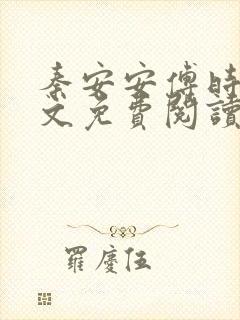 秦安安傅時
文免費閱讀
羅慶伍